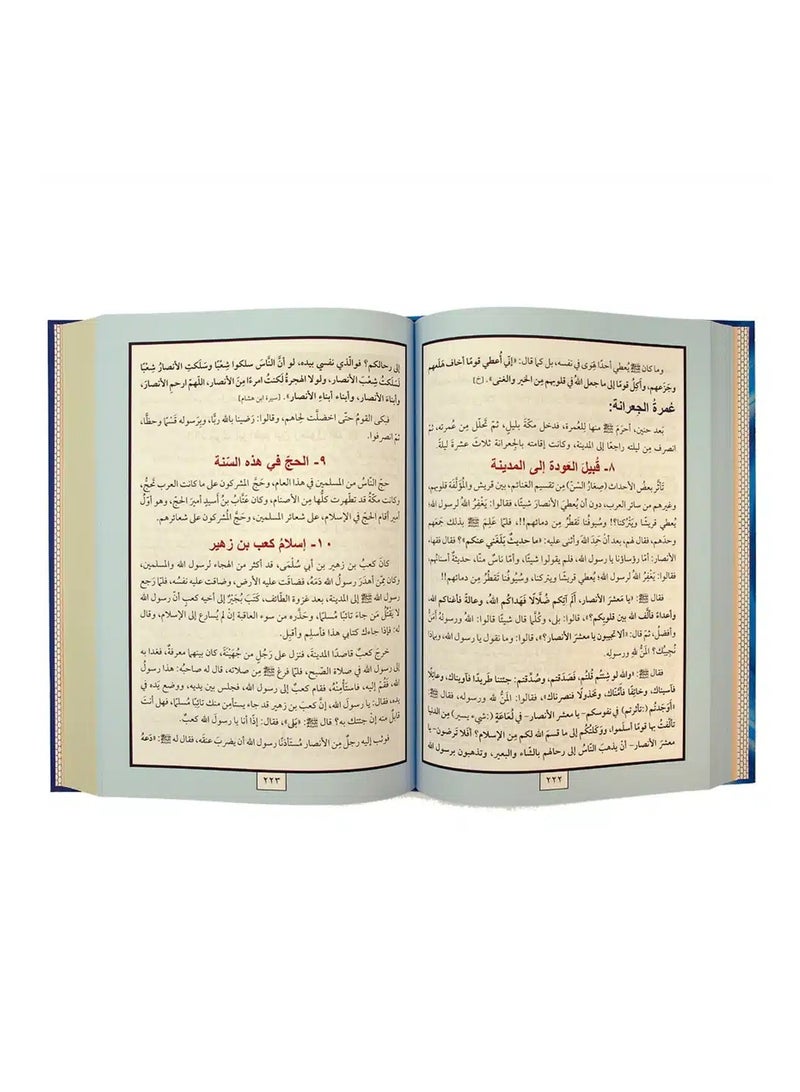 وما كان ﷺ يُعطي أحدًا لهوى في نفسه، بل كما قال: «إنّي أُعطي قومًا أخاف هَلَعهم
وجَزَعهم، وأَكِلُ قومًا إلى ما جعل اللهُ في قلوبهم مِن الخير والغنى». (خ)
عُمرةُ الجعرانة:
بعد حنين، أحرَمَ ﷺ منها للعُمرة، فدخل مكّةَ بليلٍ، ثمّ تحلّل مِن عُمرته، ثمّ
انصرف مِن ليلته راجعًا إلى المدينة، وكانت إقامته بالجِعرانة ثلاث عشرةَ ليلةً.
٨- قُبيلَ العَودة إلى المدينة
تَأثّر بعضُ الأحداث (صِغارُ السّنّ) مِن تقسيم الغنائم، بين قريش والمُؤلّفة قلوبهم،
وغيرهم مِن سائر العرب، دون أن يُعطيَ الأنصارَ شيئًا، فقالوا: يَغْفِرُ اللهُ لرسول الله؛
يُعطي قريشًا ويَتْرُكنا!! وسيوفُنا تَقطُرُ مِن دمائهم!!، فلمّا عَلِمَ ﷺ بذلك جَمَعهم
وحدَهم، فقال لهم، بعد أنْ حَمِدَ اللهَ وأثنى عليه: «ما حديثٌ بَلَغَني عنكم»؟ فقال فقهاءُ
الأنصار: أمّا رؤساؤنا يا رسول الله، فلم يقولوا شيئًا، وأمّا ناسٌ منّا، حديثةٌ أسنانُهم،
فقالوا: يَغْفِرُ اللهُ لرسول الله؛ يُعطي قريشًا ويتركنا، وسُيوفُنا تَقطُرُ مِن دمائهم!!
فقال ﷺ: «يا مَعشرَ الأنصار، ألَم آتِكم ضُلّالًا فهَداكم اللهُ، وعالةً فأغناكم الله،
وأعداءً فألّفَ الله بين قلوبكم؟»، قالوا: بلى، وكُلّما قال شيئًا قالوا: اللهُ ورسولُه أَمَنُّ
وأفضلُ، ثمّ قال: «ألا تجيبون يا معشرَ الأنصار؟»، قالوا: وما نقول يا رسول الله، وبماذا
نُجيبُك؟ المَنُّ لله ورسوله.
فقال ﷺ: «والله لو شِئتُم قُلتُم، فصَدَقتم، وصُدّقتم: جِئتنا طَريدًا فآويناك، وعائلًا
فآسيناك، وخائفًا فأمّنّاك، ومَخذولًا فنصرناك»، فقالوا: المَنُّ لله ورسوله، فقال ﷺ:
«أوَجَدتُم (:تأثرتم) في نفوسكم- يا معشر الأنصار- في لُعاعَةٍ (:شيء يسير) مِن الدنيا
تألّفتُ بها قومًا أسلَموا، ووَكَلتُكم إلى ما قسم الله لكم مِن الإسلام؟ أفلا تَرضَون- يا
معشرَ الأنصار- أنْ يذهبَ النّاسُ إلى رحالهم بالشّاء والبعير، وتذهبون برسول الله
٢٢٢
إلى رحالكم؟ فوالّذي نفسي بيده، لو أنّ النّاسَ سلكوا شِعْبًا وسَلَكتِ الأنصارُ شِعْبًا
لَسَلَكتُ شِعْبَ الأنصار، ولولا الهجرةُ لَكنتُ امرءًا مِنَ الأنصار، اللّهمّ ارحم الأنصارَ،
وأبناءَ الأنصار، وأبناء أبناءِ الأنصار». (سيرة ابن هشام)
فبكى القومُ حتّى اخضلّت لِحاهم، وقالوا: رَضينا بالله ربًّا، وبرسوله قَسْمًا وحظًّا،
ثمّ انصرفوا.
٩- الحجّ في هذه السّنة
حجّ النّاسُ من المسلمين في هذا العام، وحَجّ المشركون على ما كانت العرب تحجّ،
وكانت مكّةُ قد تطهّرت كلّها مِن الأصنام، وكان عَتّابُ بنُ أَسيدٍ أميرَ الحجّ، وهو أوّلُ
أميرٍ أقام الحجّ في الإسلام، على شعائر المسلمين، وحَجّ المُشركون على شعائرهم.
١٠- إسلامُ كعب بن زهير
كان كعبُ بن زهير بن أبي سُلْمَى، قد أكثر من الهجاء لرسول الله والمسلمين،
وكان مِمّن أهدَرَ رسولُ الله دَمَهُ، فضاقَت عليه الأرض، وضاقت عليه نفسُه، فلمّا رَجع
رسول الله ﷺ إلى المدينة، بعد غزوة الطّائف، كَتَبَ بُجَيْرٌ إلى أخيه كعبٍ أنّ رسول الله
لا يَقْتُلُ مَن جاءَ تائبًا مُسلمًا، وحذّره من سوء العاقبة إنْ لم يُسارع إلى الإسلام، وقال
له: فإذا جاءك كتابي هذا فأسلِم وأقبِل.
خرجَ كعبٌ قاصدًا المدينةَ، فنزل على رَجُلٍ من جُهَيْنَةَ، كان بينهما معرفةٌ، فغدا به
إلى رسول الله في صلاة الصّبح، فلمّا فرغ ﷺ مِن صلاته، قال له صاحبُه: هذا رسولُ
الله، فَقُمْ إليه، فاستأمِنْهُ، فقام كعبٌ إلى رسول الله، فجلس بين يديه، ووضع يدَه في
يدِه، فقال: يا رسول الله، إنَّ كعب بن زهير قد جاء يستأمِن منك تائبًا مُسلمًا، فهل أنتَ
قابلٌ منه إن جئتك به؟ قال ﷺ: «بَلى»، فقال: إذًا أنا يا رسولَ الله كعبٌ.
فوثب إليه رجلٌ مِن الأنصار مُستأذنًا رسول الله أن يضربَ عنقَه، فقال له ﷺ: «دَعهُ
٢٢٣